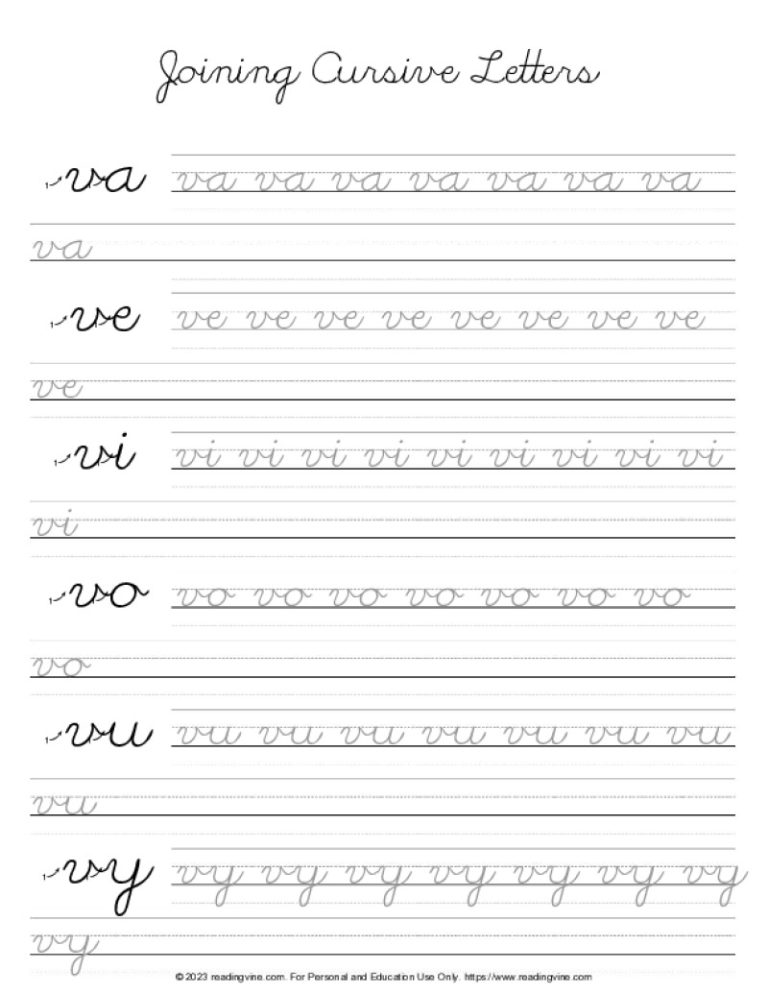 Joining Cursive Letters
va va va va va va va va
va
ve ve ve ve ve ve ve ve ve
ve
vi vi vi vi vi vi vi vi vi vi
vi
vo vo vo vo vo vo vo vo
vo
vu vu vu vu vu vu vu vu
vu
vy vy vy vy vy vy vy vy
vy
©2023 readingvine.com. For Personal and Education Use Only. https://www.readingvine.com